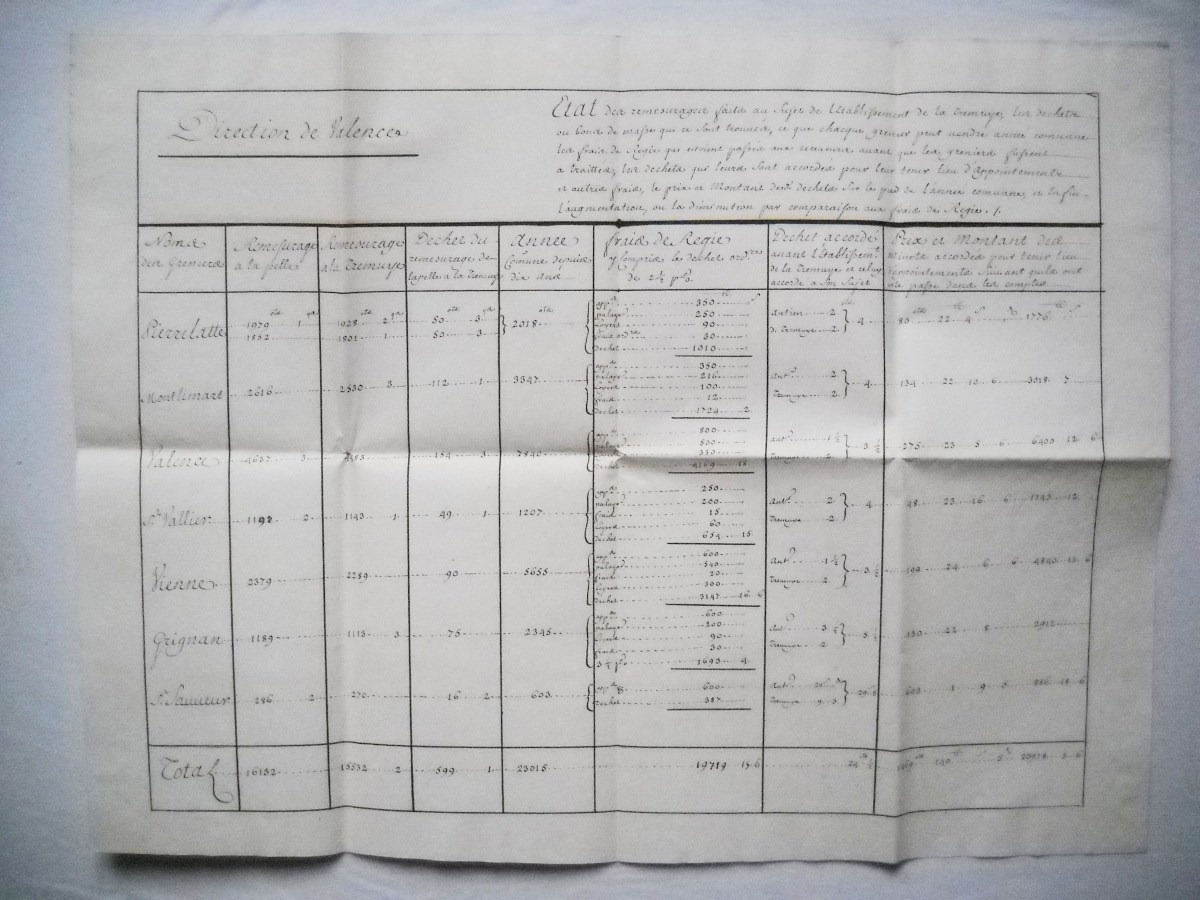 Direction de Valence
Etat des remesurages faits au Sujet de l'Etablissement de la tremuye, les dechets
ou bons de masse qui se sont trouvés, ce que chaque grenier peut vendre année comune
les frais de Regie qui etoient passés aux receveurs avant que les greniers fussent
a traittés, les dechets qui leurs sont accordés pour leur tenir lieu d'appointements
et autres frais, le prix et Montant des dechets sur le pied de l'année comune, et Enfin
l'augmentation, ou la diminution par comparaison aux frais de Regie ./.
Noms des Greniers
Remesurage a la pelle
Remesurage a la Tremuye
Dechet du remesurage de la pelle a la Tremuye
Année Comune depuis dix ans
frais de Regie y Compris le dechet ord.res de 2 ½ p%
Dechet accordé avant l'Etablissem.t de la Tremuye et celuy accordé a son Sujet
Prix et Montant des minots accordés pour tenir lieu appointements Suivant quils ont été passé dans les comptes
Pierrelatte 1979 1 1928 2 50 3 2018
1852 1801 1 50 3
app.s 350
palays 250
Loyers 90
frais ord.re 30
dechet 1010
antien 2
d. Tremuye 2 4
22 4 1776
Montlimart 2616 2530 3 112 1 3347
app.s 350
palays 216
Loyers 100
frais 12
dechet 1724 2
ant.n 2
Tremuye 2 4
134 22 10 6 3018 7
Valence 4637 3 4483 154 3 7840
app.s 800
palays 500
330
dechet 4169 18
ant.n 1 ½
Tremuye 2 3 ½
275 23 5 6 6400 12 6
S.t Vallier 1192 2 1143 1 49 1 1207
app.s 250
palays 200
frais 15
Loyers 60
dechet 654 15
ant.n 2
Tremuye 2 4
48 23 16 6 1143 12
Vienne 2379 2289 90 5655
app.s 600
palays 540
frais 20
Loyers 300
dechet 3147 16 6
ant.n 1 ½
Tremuye 2 3 ½
24 6 6 4840
Grignan 1189 1113 3 75 2345
app.s 600
palays 200
90
frais 30
3 ½ p% 1693 4
ant.n 3 ½
Tremuye 2 5 ½
130 22 8 2912
S.t Sauveur 286 2 270 16 2 603
app.s 600
dechet 387
ant.n
Tremuye 9 3
603 1 9 5 886 18 6
Total 16132 15532 2 599 1 23015 19719 15 6